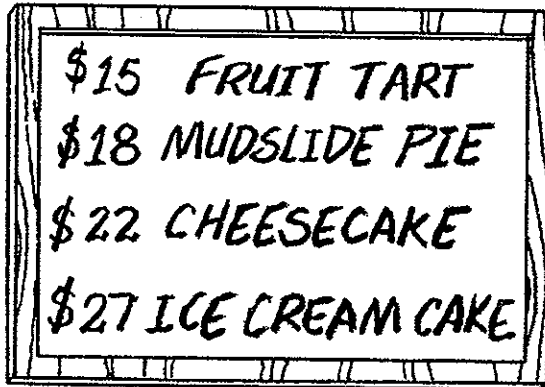 $15 FRUIT TART
$18 MUDSLIDE PIE
$22 CHEESECAKE
$27 ICE CREAM CAKE